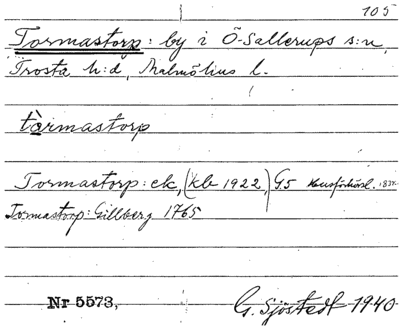 105
Tormastorp: by i Ö-Sallerups s:n,
Frosta h:d, Malmöhus l.
tòrmastorp
Tormastorp: ek, (kb 1922,) G5 Husförhörsl.
Tormastorp: Gillberg 1765
Nr 5573,
G. Sjöstedt 1940